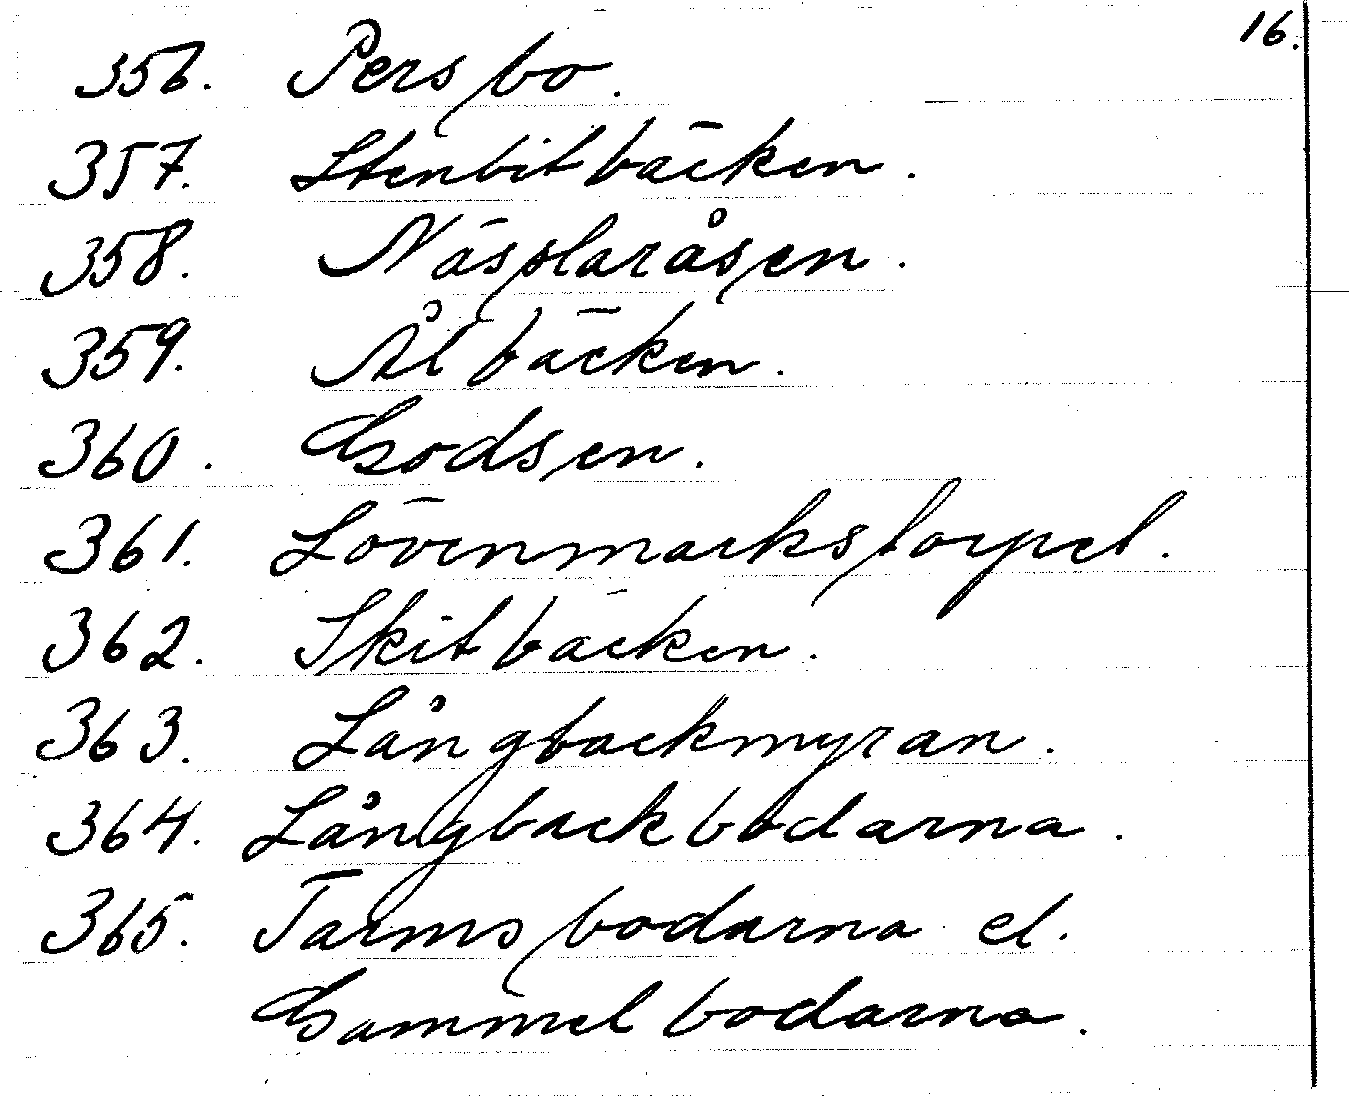 16.
356. Persbo.
357. Stenbitbäcken.
358. Näsplaråsen.
359. Ålbäcken.
360. Godsen.
361. Lövenmarkstorpet.
362. Skitbäcken.
363. Långbackmyran.
364. Långbackbodarna.
365. Tarmsbodarna el.
Gammelbodarna.